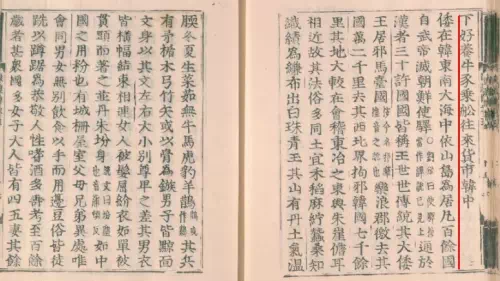 下好養牛豕乘船往來貨市韓中
倭在韓東南大海中依山㠀為居凡百餘國
自武帝滅朝鮮使驛通於
漢者三十許國國皆稱王世世傳統其大倭
王居邪馬臺國樂浪郡徼去其
國萬二千里去其西北界拘邪韓國七千餘
里其地大較在會稽東冶之東與朱崖儋耳
相近故其法俗多同土宜禾稻麻紵蠶桑知
織績為縑布出白珠青玉其山有丹土氣溫
腝冬夏生菜茹無牛馬虎豹羊鵲其兵
有矛楯木弓竹矢或以骨為鏃男子皆黥面
文身以其文左右大小別尊卑之差其男衣
皆橫幅結束相連女人被髮屈紒衣如單被
貫頭而著之並丹朱坋身如中
國之用粉也有城柵屋室父母兄弟異處唯
會同男女無別飲食以手而用籩豆俗皆徒
跣以蹲踞為恭敬人性嗜酒多壽考至百餘
歲者甚衆國多女子大人皆有四五妻其餘